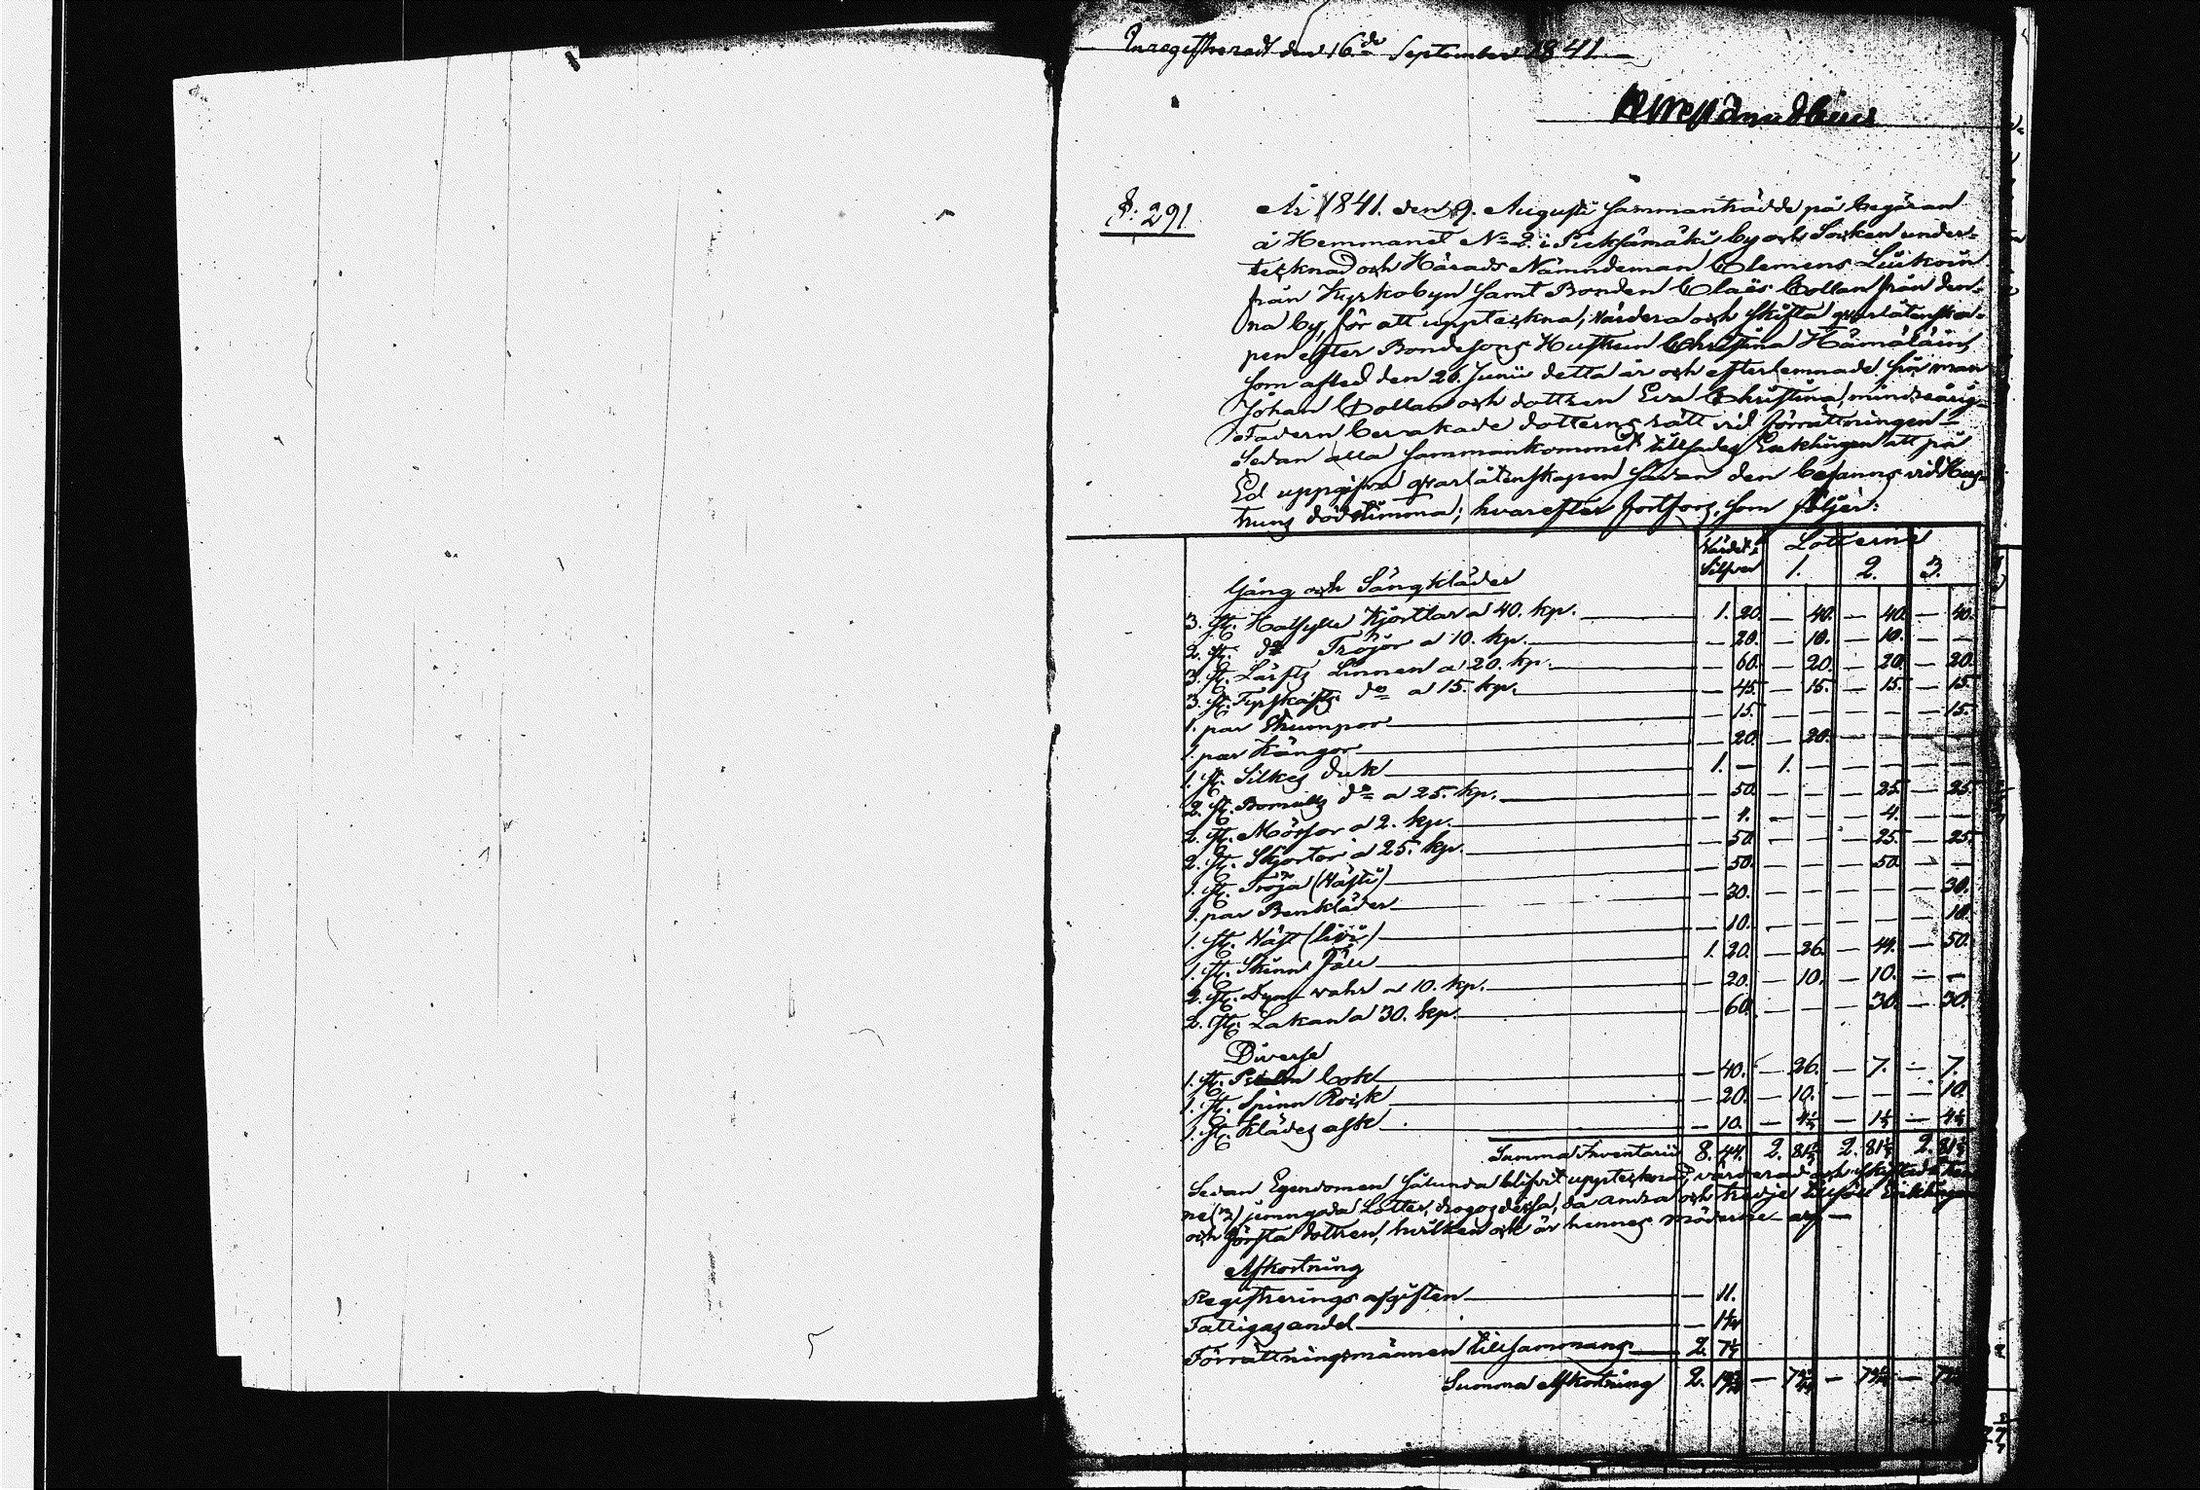 Inregistreradt den 16de September 1841.
§. 291
År 1841. den 9. Augusti sammanträdde på begäran
å Hemmanet No 2. i Pieksämäki by och Socken under-
tecknad och Härads Nämndeman Clemens Liukoin
från Kyrkobyn samt Bonden Claës Collan från den-
na by, för att uppteckna, värdera och skifta qvarlåtenska-
pen efter Bondesons Hustrun Christina Hämäläin,
som afled den 26. Junii detta år och efterlemnade sin man
Johan Collan och dottren Eva Christina, minderårig
Fadern bevakade dotterns rätt vid förrättningen –
Sedan alla sammankommit tillsades Enklingen att på
Ed uppgifva qvarlåtenskapen sådan den befanns vid Hus-
truns dödstimma; hvarefter fortfors, som följer:
Värdet i Silfver Lotterne
1. 2. 3.
Gång och Sängkläder
3. st. Halfylle Kjortlar a 40. kp. 1. 20. – 40. – 40. – 40.
2. st. do Tröjor a 10. kp. – 20. – 10. – 10. – –
3. st. Lärfts Linnen a 20. kp. – 60. – 20. – 20. – 20.
3. st. do a 15. kp. – 45. – 15. – 15. – 15.
1. par Strumpor – 15. – – – – – 15.
1. par Kängor – 20. – 20. – – – –
1. st. Silkes duk 1. – 1. – – – – –
2. st. Bomulls do a 25. kp. – 50. – – – 25. – 25.
2. st. Mössor a 2. kp. – 4. – – – 4. – –
2. st. Skjortor a 25. kp. – 50. – – – 25. – 25.
1. st. Tröja – 50. – – – 50. – –
1. par Benkläder – 30. – – – – – 30.
1. st. Väst (livi) – 10. – – – – – 10.
1. st. Skinn Fäll 1. 20. – 26. – 44. – 50.
2. st. Dyn wahr a 10. kp. – 20. – 10. – 10. – –
2. st. Lakan a 30. kp. – 60. – – – 30. – 30.
Diverse
1. st. Psalm bok – 40. – 26. – 7. – 7.
1. st. Spinn Rock – 20. – 10. – – – 10.
1. st. Klädes ask – 10. – 4⅓ – 1⅓ – 4⅓
Summa Inventarii 8. 44. 2. 81⅓ 2. 81⅓ 2. 81⅓
Sedan Egendomen sålunda blifvit upptecknad, värderad och skiftad i tren-
ne (3) jemngoda Lotter, drogos dessa, da andra och tredje tillföll Enklingen
och första dottren, hvilken ock är hennes möderne arf –
Afkortning
Registrerings afgiften – 11.
Fattigas andel –
Förrättningsmännen tillsammans 2. 7½
Summa Afkortning 2.